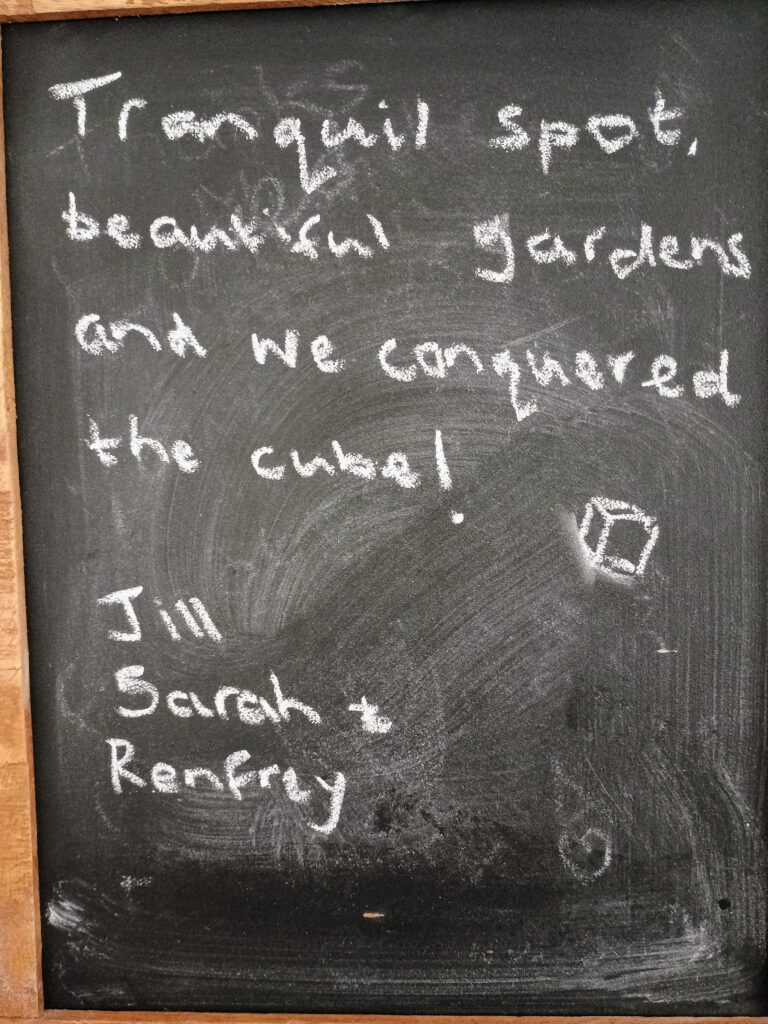 Tranquil spot,
beautiful gardens
and we conquered
the cube!
Jill
Sarah &
Renfrey